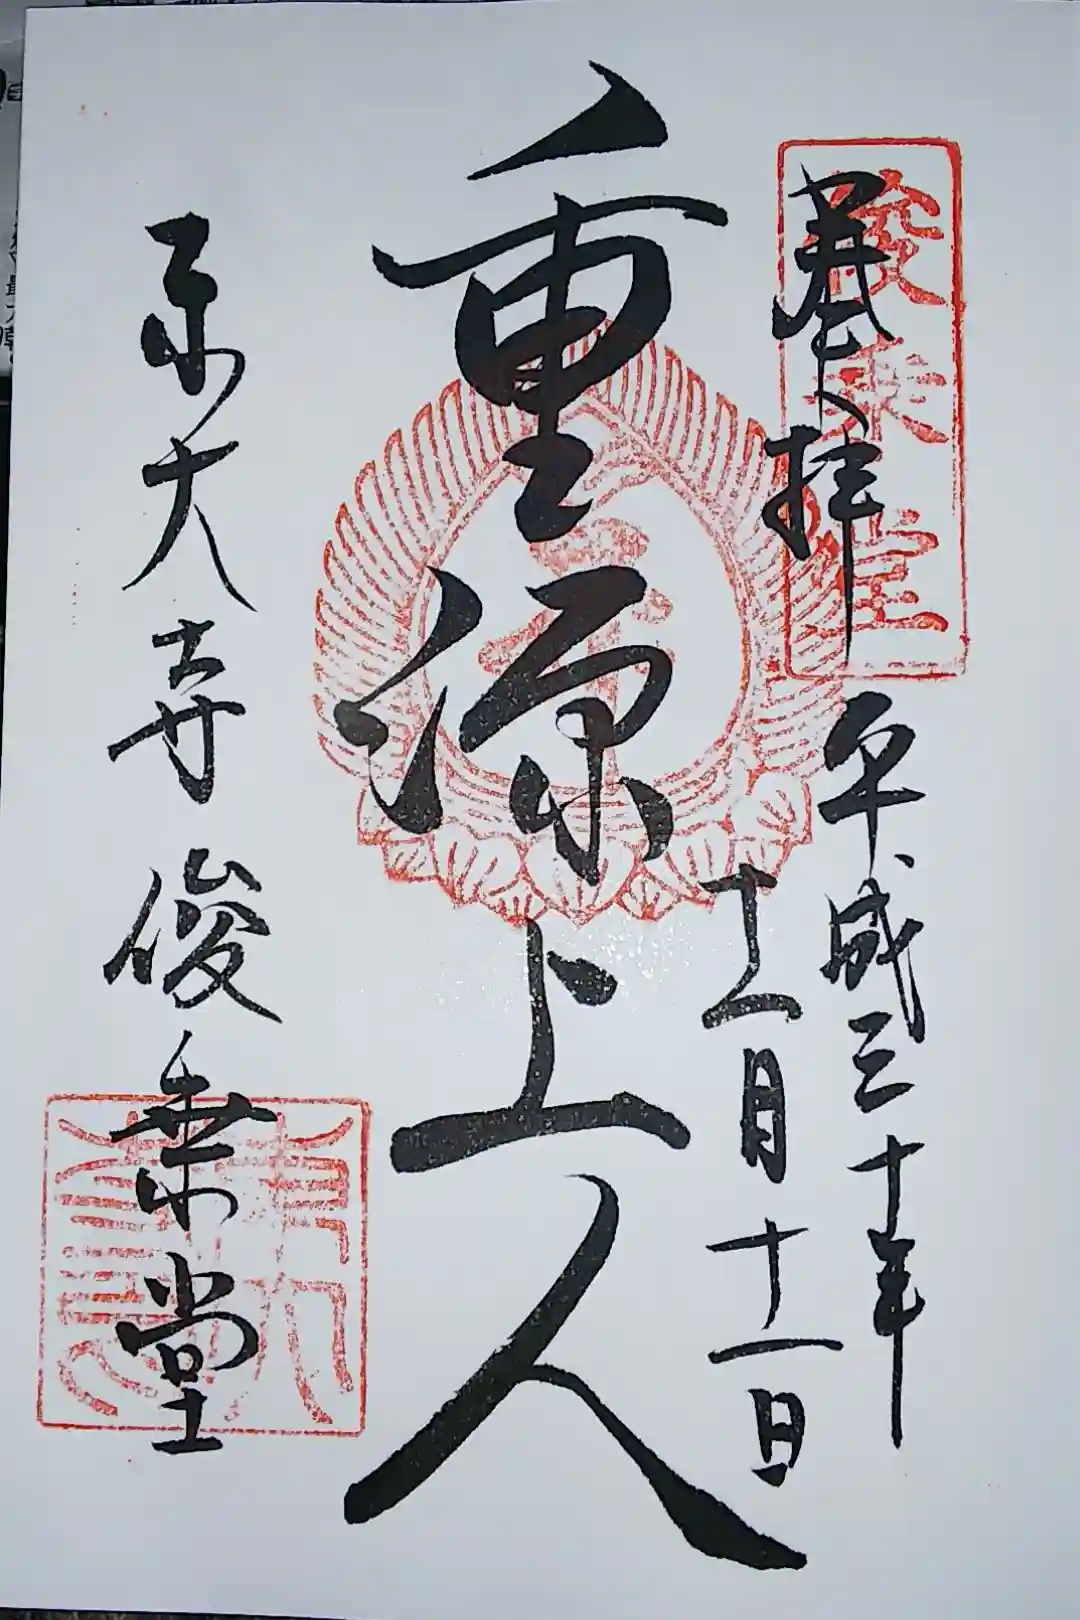 奉拝
俊乗堂
平成三十年
五月十一日
重源上人
東大寺俊乗堂